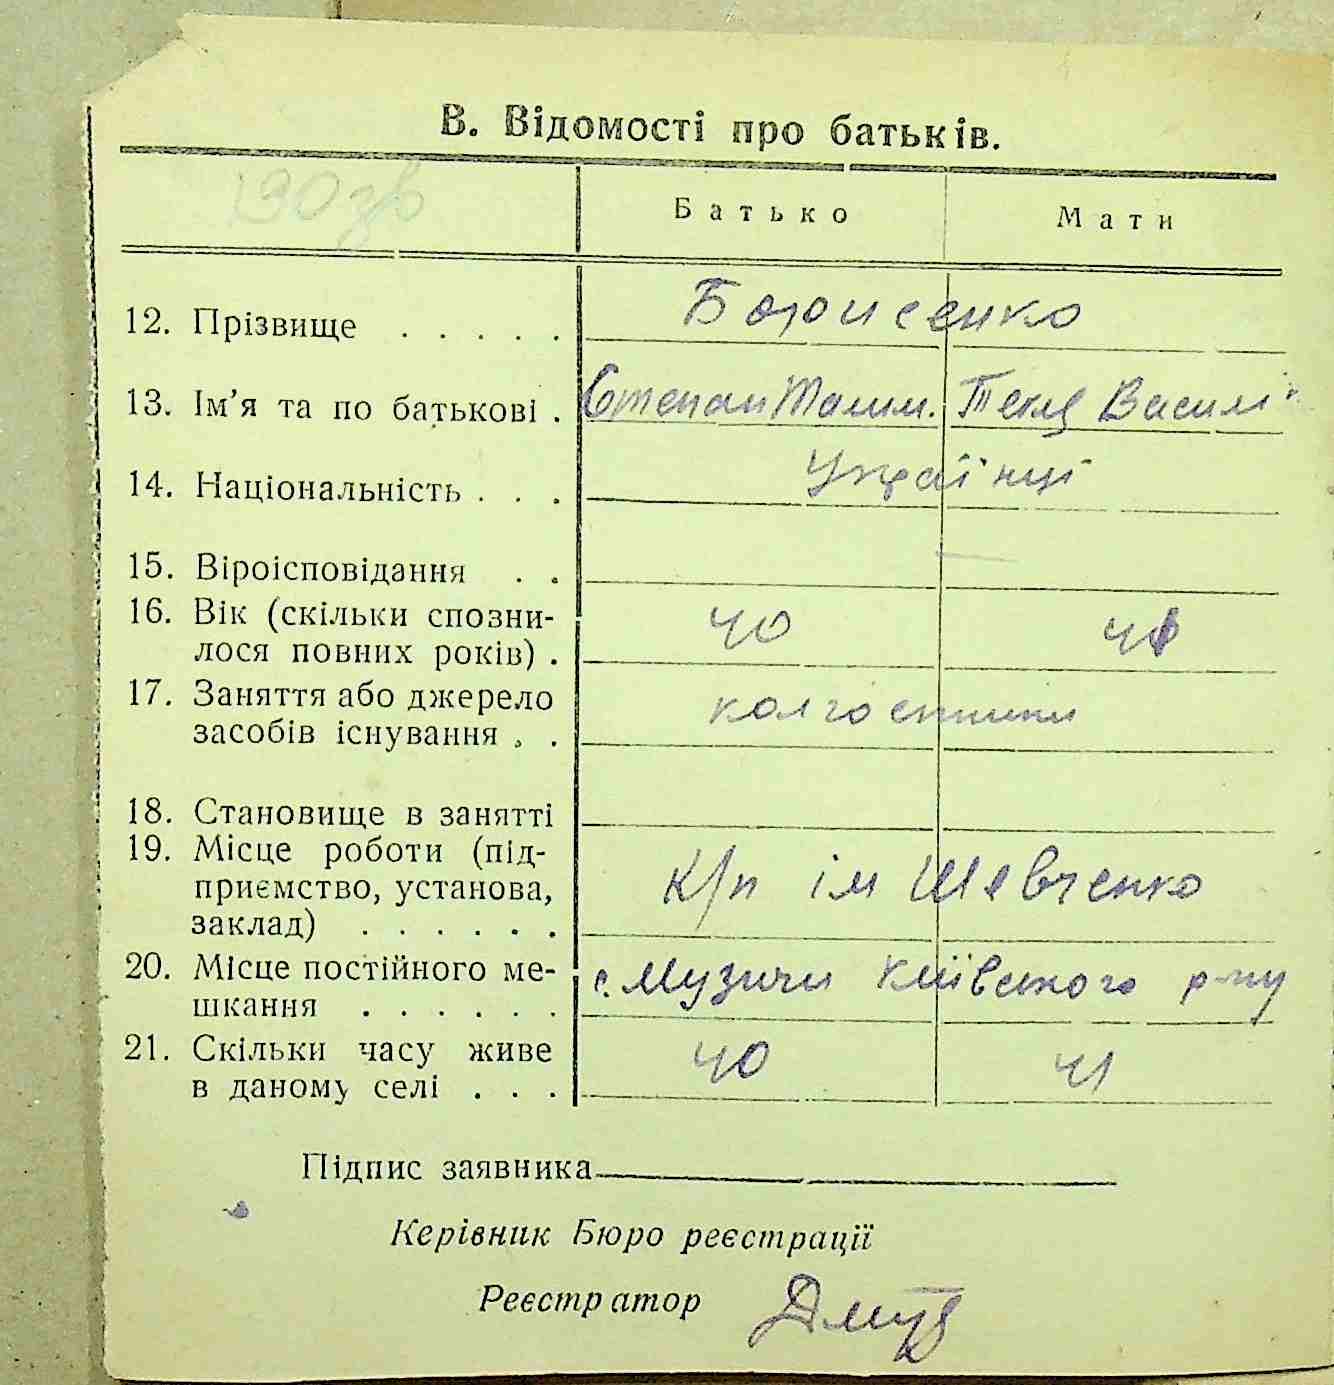 В. Відомості про батьків.
Батько Мати
12. Прізвище . . . . . Борисенко
13. Ім'я та по батькові . Степан Текля Васил
14. Національність . . . Українці
15. Віроісповідання . .
16. Вік (скільки спозни-
лося повних років) . 40
17. Заняття або джерело
засобів існування . . колгоспники
18. Становище в занятті
19. Місце роботи (під-
приємство, установа,
заклад) . . . . . . К/п ім Шевченко
20. Місце постійного ме-
шкання . . . . . . с. Музичи Київського р-ну
21. Скільки часу живе
в даному селі . . . 40 41
Підпис заявника
Керівник Бюро реєстрації
Реєстратор